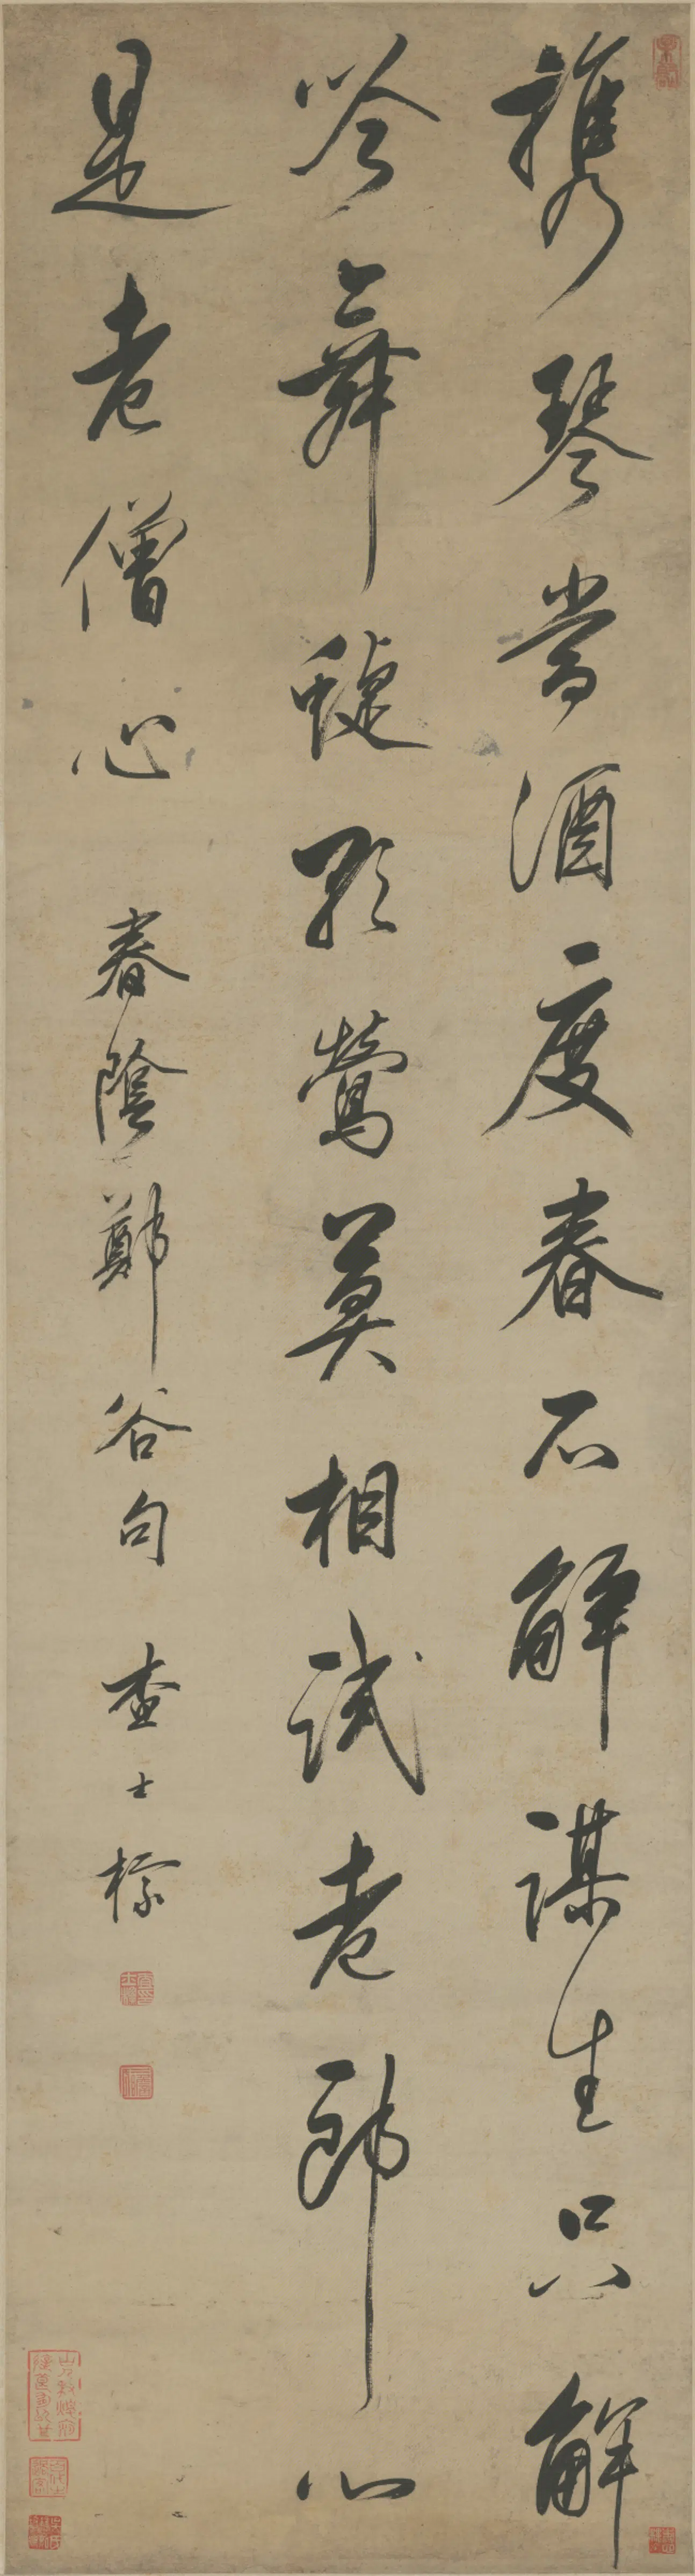 携琴当酒度春石解謀生只解
吟舞蝶歌鶯莫相試老郎心
是老僧心 春陰鄭谷句 查士標